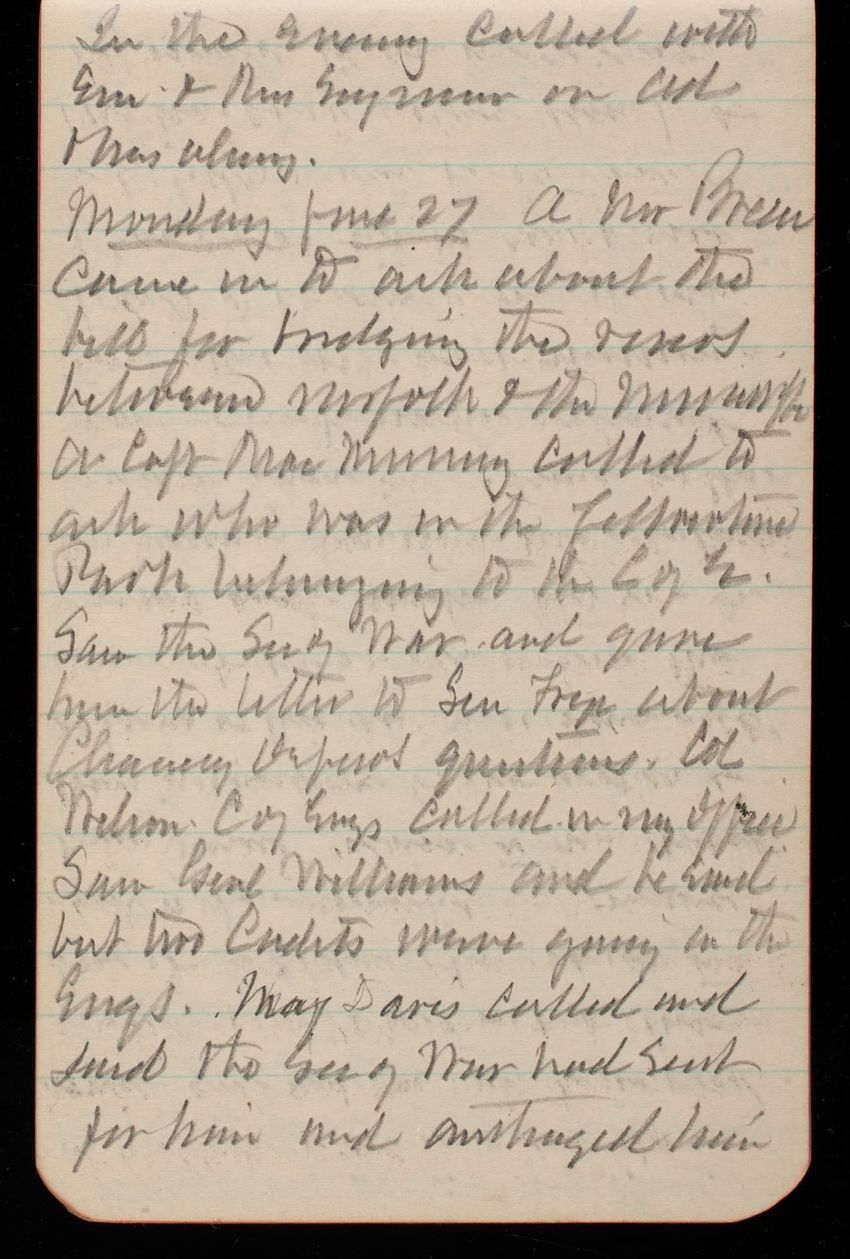 In the evening called with
Em & Mrs Seymour on Col
Monday June 27 A Mr Breen
came in to ask about the
bill for bridging the rivers
between Norfolk & the
A Capt called to
ask who was in the Yellowstone
Park belonging to the C of E.
Saw the Sec of War and gave
him the letter to Sen Frye about
Chauncey questions. Col
Wilson C of Engs called in my office
Saw Genl Williams and he said
but two Cadets were going in the
Engs. Maj Davis called and
said the Sec of War had sent
for him and him